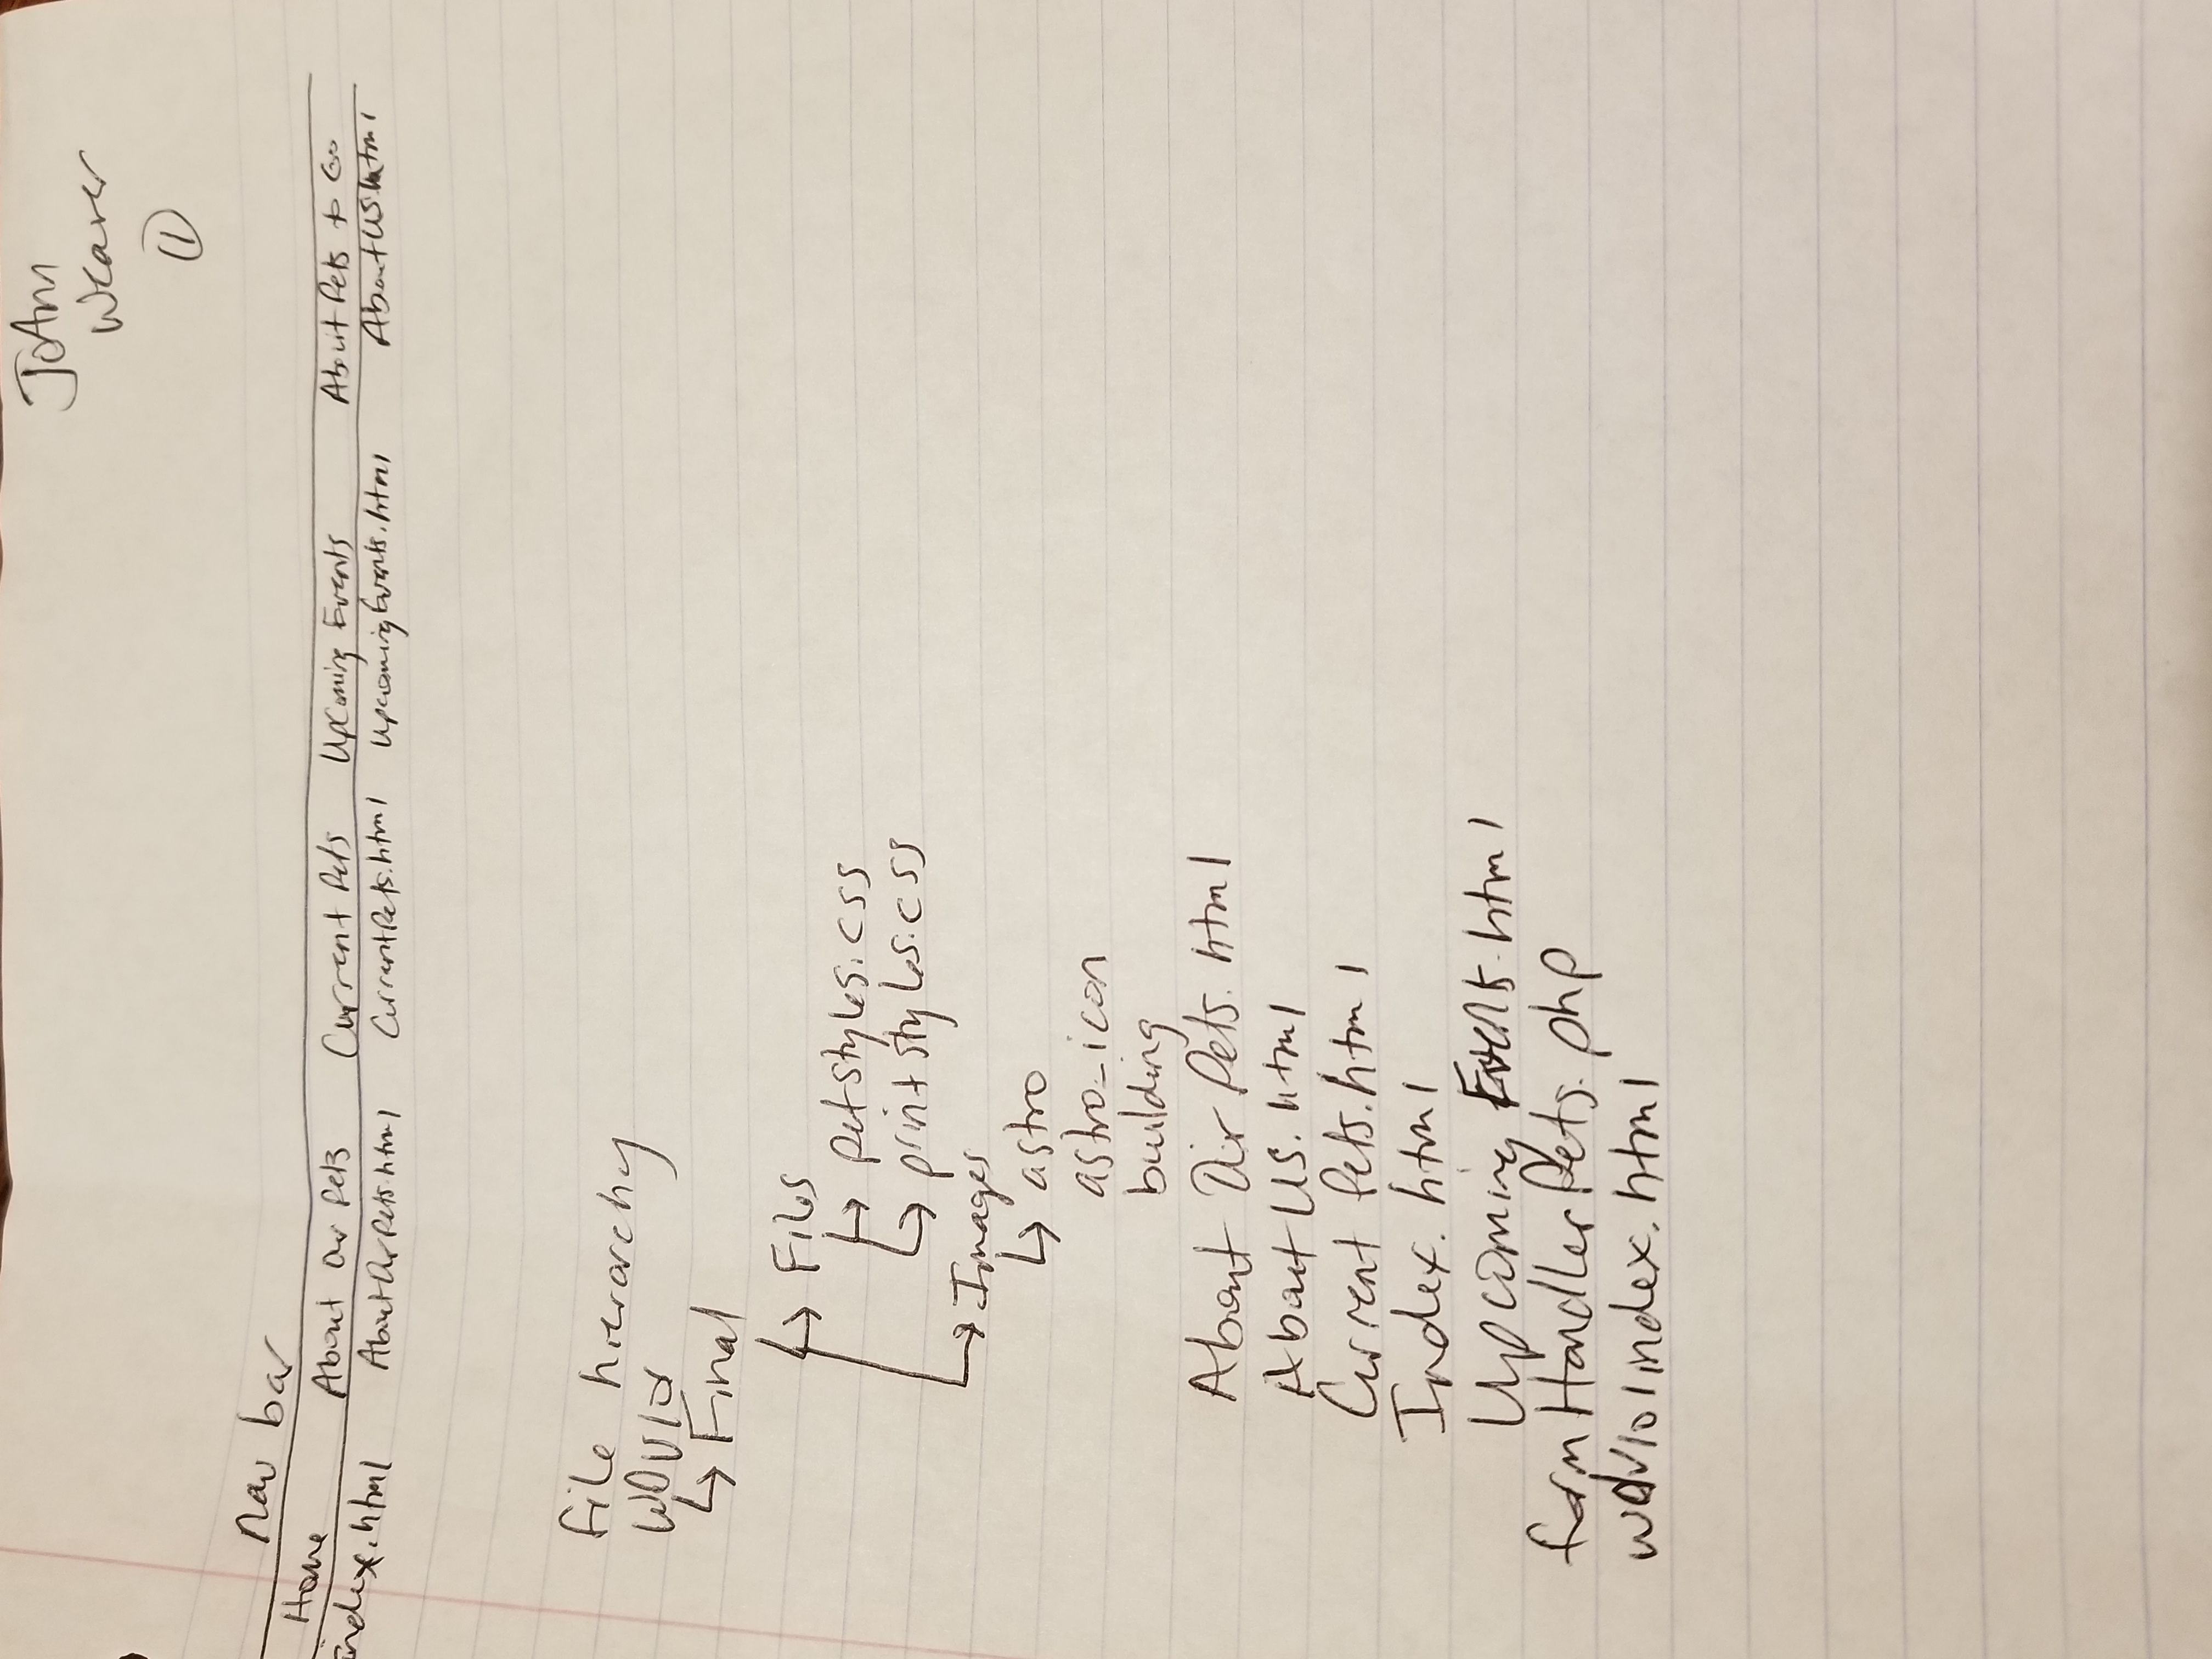 JoAnn
Weaver
1
nav bar
Home About Our Pets Current Pets Upcoming Events About Pets to Go
index.html AboutOurPets.html CurrentPets.html UpcomingEvents.html AboutUS.html
file hierarchy
WDV101
↳ Final
↳ Files
↳ petstyles.css
↳ printstyles.css
↳ Images
↳ astro
astro_icon
building
About Our Pets.html
AboutUS.html
Current Pets.html
Index.html
Upcoming Events.html
formHandlerPets.php
wdv101index.html